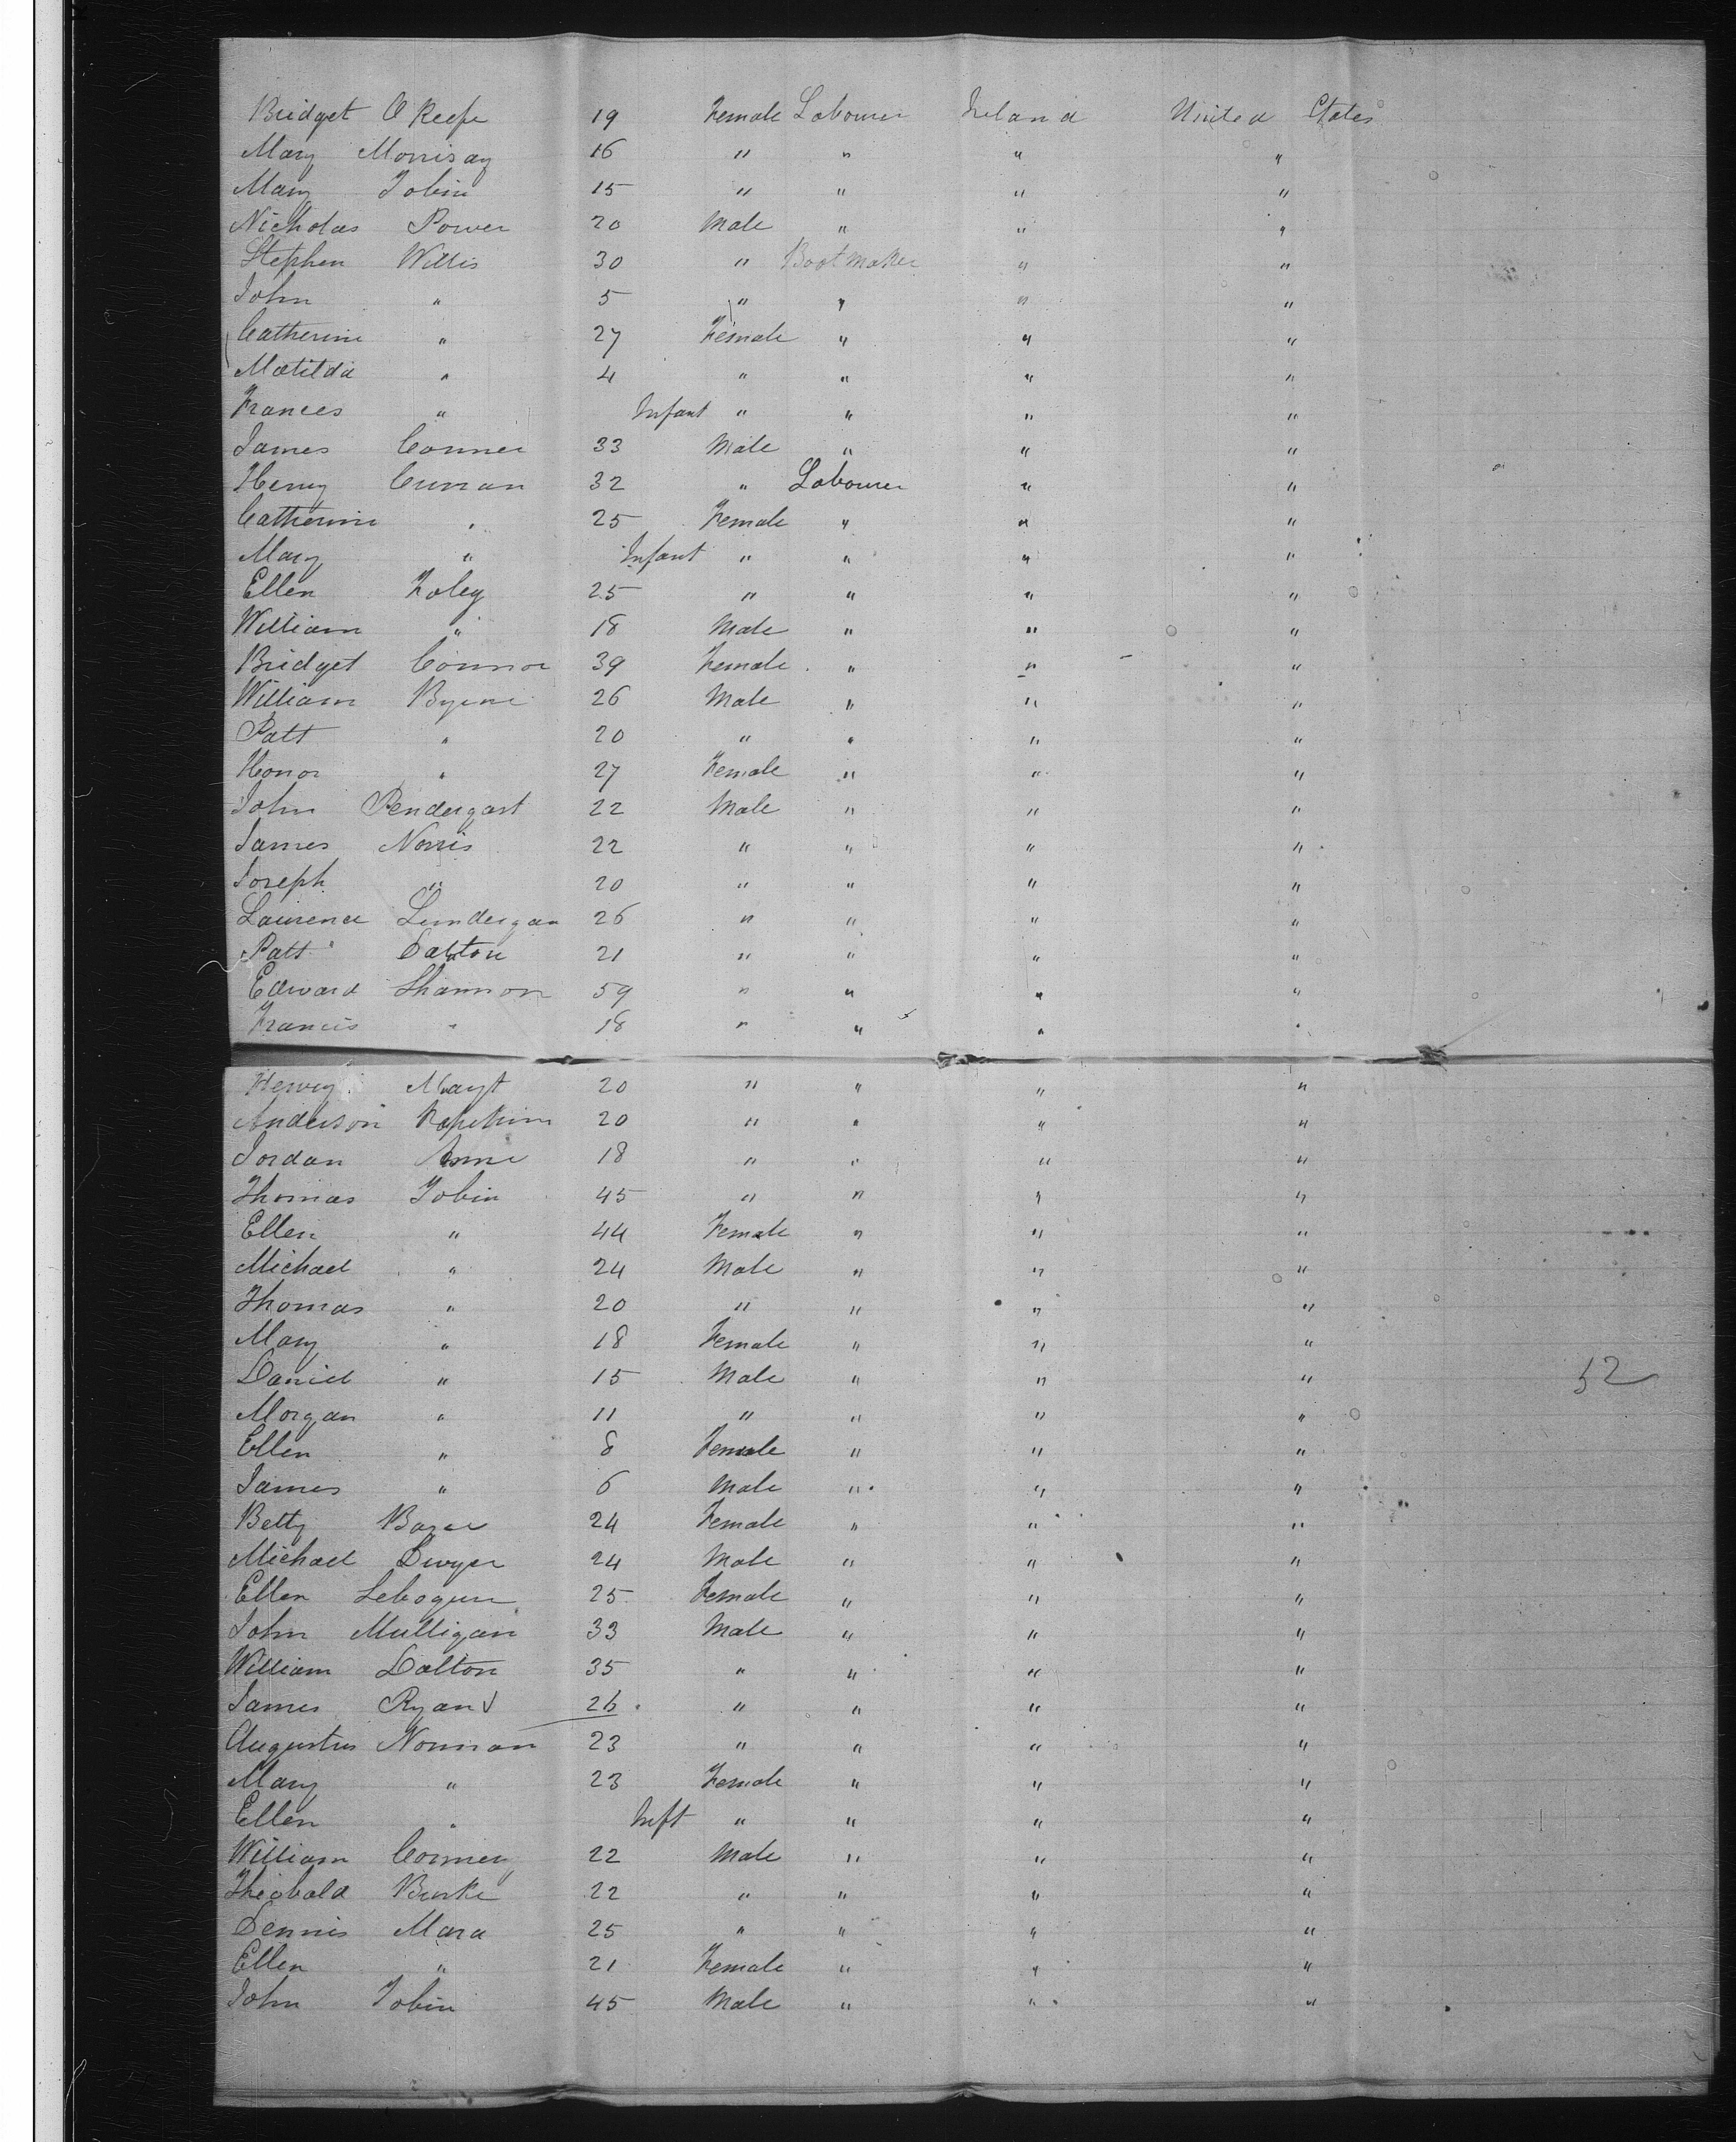 Bridget O Keefe 19 Female Labourer Ireland United States
Mary Morrisay 16 " " " "
Mary Tobin 15 " " " "
Nicholas Power 20 Male " " "
Stephen Willis 30 " Bootmaker " "
John " 5 " " " "
Catherine " 27 Female " " "
Matilda " 4 " " " "
Frances " Infant " " " "
James Conner 33 Male " " "
Henry Curran 32 " Labourer " "
Catherine " 25 Female " " "
Mary " Infant " " " "
Ellen Foley 25 " " " "
William " 18 Male " " "
Bridget Connor 39 Female " " "
William Byrne 26 Male " " "
Patt " 20 " " " "
Honor " 27 Female " " "
John Pendergast 22 Male " " "
James Norris 22 " " " "
Joseph " 20 " " " "
Laurence Lundergan 26 " " " "
Patt Dalton 21 " " " "
Edward Shannon 59 " " " "
Francis " 18 " " " "
Henry 20 " " " "
Anderson 20 " " " "
Jordan Anne 18 " " " "
Thomas Tobin 45 " " " "
Ellen " 44 Female " " "
Michael " 24 Male " " "
Thomas " 20 " " " "
Mary " 18 Female " " "
Daniel " 15 Male " " "
52
Morgan " 11 " " " "
Ellen " 8 Female " " "
James " 6 Male " " "
Betty 24 Female " " "
Michael Dwyer 24 Male " " "
Ellen 25 Female " " "
John Mulligan 33 Male " " "
William Dalton 35 " " " "
James Ryan 26 " " " "
Augustus Norman 23 " " " "
Mary " 23 Female " " "
Ellen " Inft " " " "
William 22 Male " " "
Theobald Burke 22 " " " "
Dennis Mara 25 " " " "
Ellen " 21 Female " " "
John Tobin 45 Male " " "